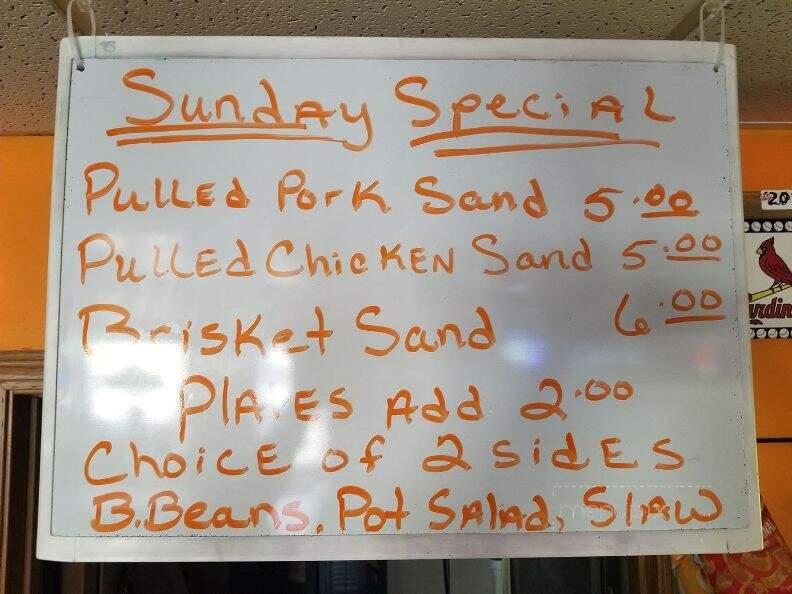 Sunday Special
Pulled Pork Sand 5.00
Pulled Chicken Sand 5.00
Brisket Sand 6.00
Plates Add 2.00
Choice of 2 Sides
B.Beans, Pot Salad, Slaw